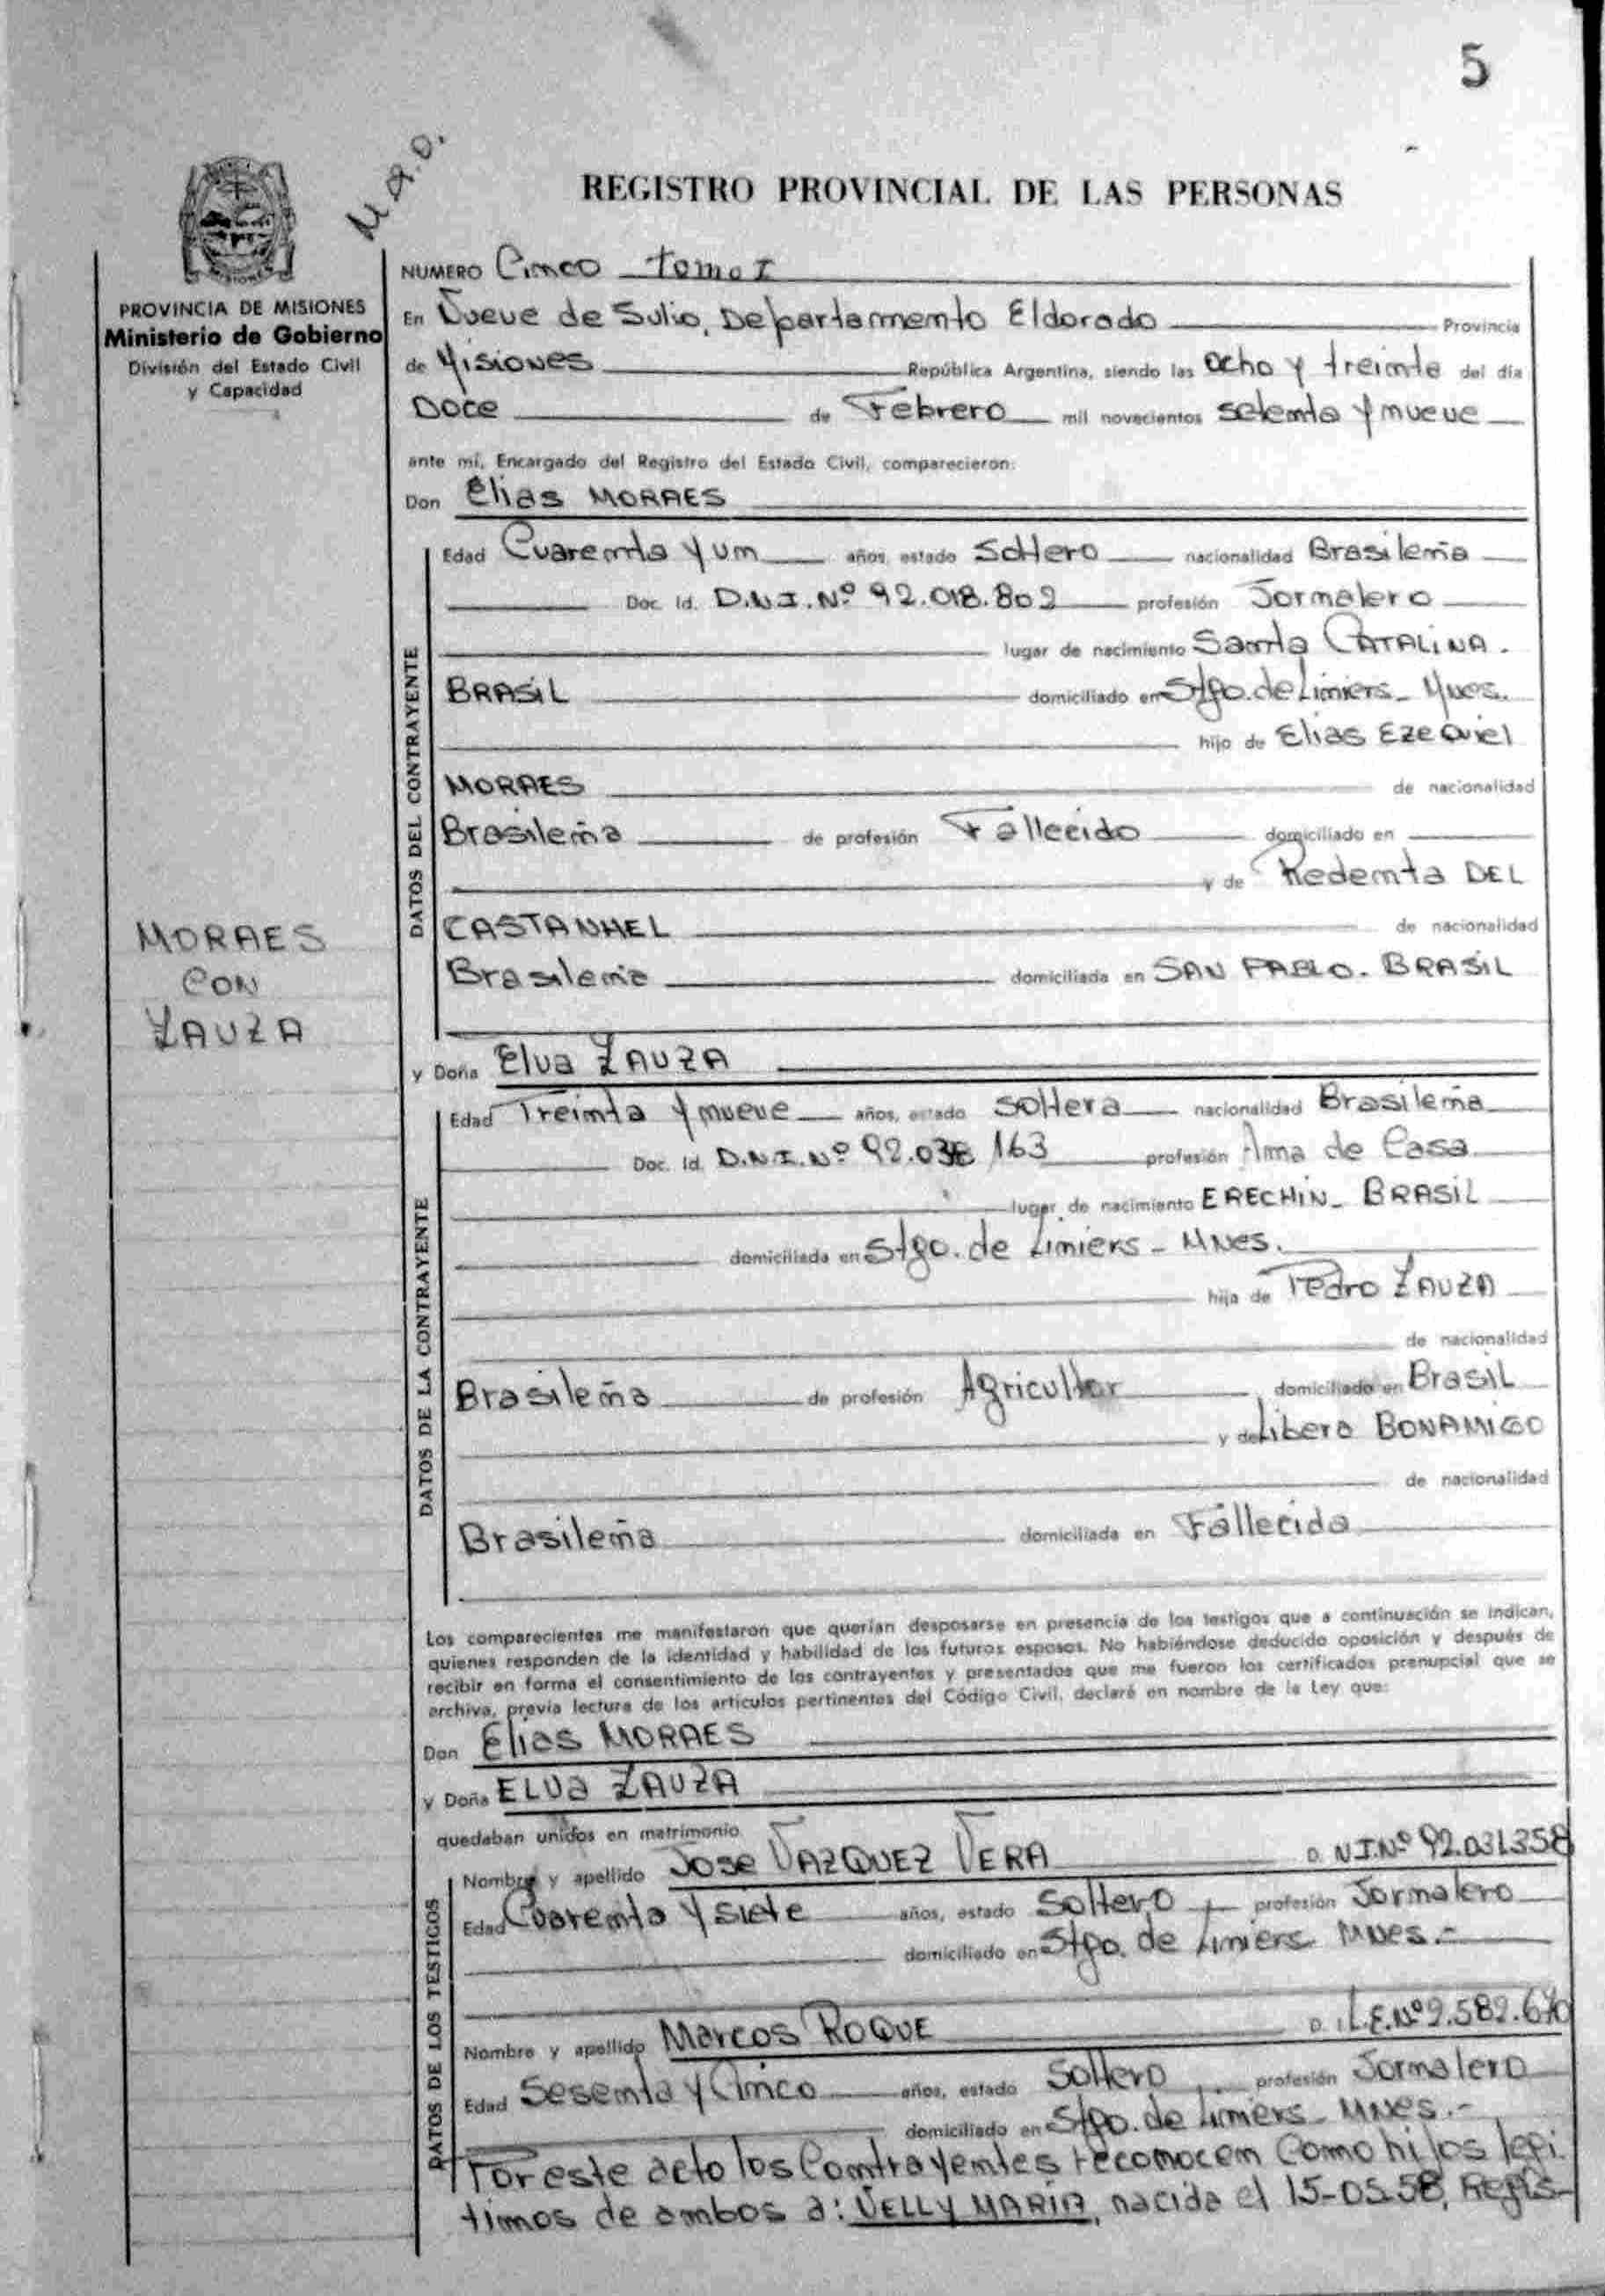 5
M.A.D.
REGISTRO PROVINCIAL DE LAS PERSONAS
PROVINCIA DE MISIONES
Ministerio de Gobierno
División del Estado Civil
y Capacidad
NUMERO Cinco tomo I
En Nueve de Julio, Departamento Eldorado Provincia
de Misiones República Argentina, siendo las ocho y treinta del día
Doce de Febrero mil novecientos setenta y nueve
ante mí, Encargado del Registro del Estado Civil, comparecieron:
Don Elias MORAES
DATOS DEL CONTRAYENTE
Edad Cuarenta y un años, estado Soltero nacionalidad Brasileña
Doc. Id. D.N.I. Nº 92.018.802 profesión Jornalero
lugar de nacimiento Santa CATALINA.
BRASIL domiciliado en Stgo. de Liniers - Mnes.
hijo de Elias EZEQUIEL
MORAES de nacionalidad
Brasileña de profesión Fallecido domiciliado en
y de Redenta DEL
CASTANHEL de nacionalidad
Brasileña domiciliada en SAN PABLO - BRASIL
MORAES
CON
ZAUZA
y Doña Elva ZAUZA
DATOS DE LA CONTRAYENTE
Edad Treinta y nueve años, estado soltera nacionalidad Brasileña
Doc. Id. D.N.I. Nº 163 profesión Ama de Casa
lugar de nacimiento ERECHIN - BRASIL
domiciliada en Stgo. de Liniers - Mnes.
hija de Pedro ZAUZA
de nacionalidad
Brasileña de profesión Agricultor domiciliado en Brasil
y de Libera BONAMIGO
de nacionalidad
Brasileña domiciliada en Fallecida
Los comparecientes me manifestaron que querían desposarse en presencia de los testigos que a continuación se indican,
quienes responden de la identidad y habilidad de los futuros esposos. No habiéndose deducido oposición y después de
recibir en forma el consentimiento de los contrayentes y presentados que me fueron los certificados prenupcial que se
archiva, previa lectura de los artículos pertinentes del Código Civil, declaré en nombre de la Ley que:
Don Elias MORAES
y Doña ELVA ZAUZA
quedaban unidos en matrimonio
DATOS DE LOS TESTIGOS
Nombre y apellido Jose VAZQUEZ VERA D. N.I. Nº 92.031.358
Edad Cuarenta y siete años, estado Soltero profesión Jornalero
domiciliado en Stgo. de Liniers Mnes.-
Nombre y apellido Marcos ROQUE D. I. L.E. Nº 2.582.670
Edad Sesenta y Cinco años, estado Soltero profesión Jornalero
domiciliado en Stgo. de Liniers - Mnes.-
Por este acto los Contrayentes reconocen como hijos legi-
timos de ambos a: NELLY MARIA, nacida el 15-05-58, Regis-